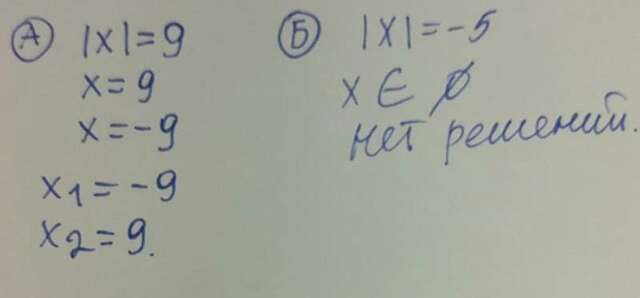 А |x|=9
x=9
x=-9
x1=-9
x2=9.
Б |x|=-5
x ∈ ∅
нет решений.